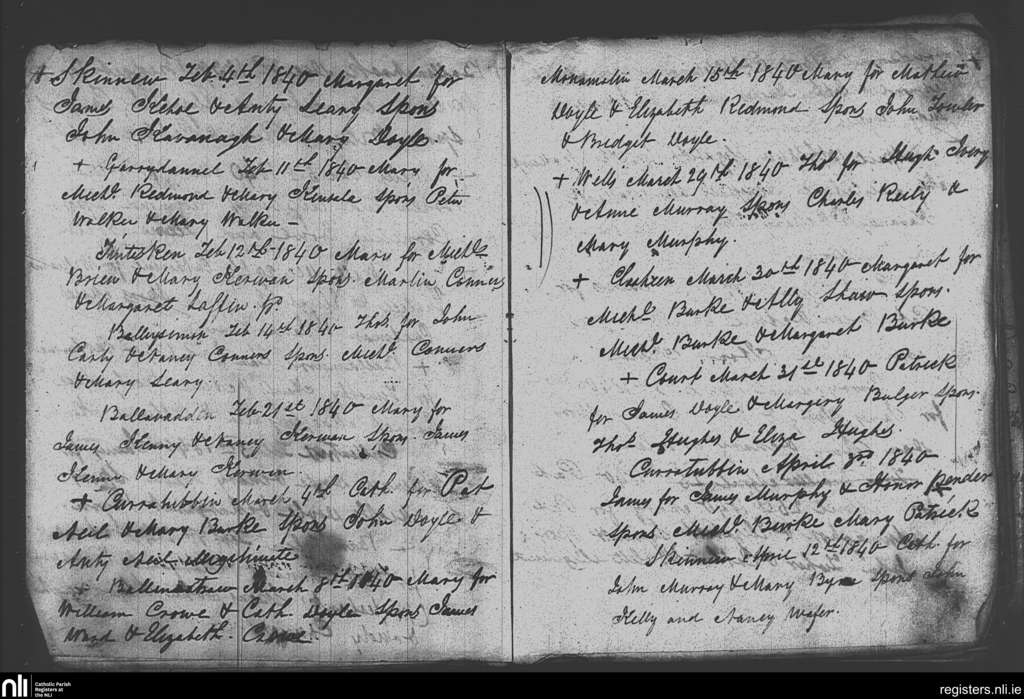 + Skinnew Feb. 4th 1840 Margaret for
James Kehoe & Anty Leary Spons
John Kavanagh & Mary Doyle
+ Garrydaniel Feb 11th 1840 Mary for
Michl. Redmond & Mary Kinsela Spons Peter
Walker & Mary Walker –
Feb 12th 1840 Mary for Michl.
Brien & Mary Kerwan Spons. Martin Connors
& Margaret Laffin.
Feb 14th 1840 Thos. for John
Carty & Nancy Connors Spons. Michl. Connors
& Mary Leary
Ballavadden Feb 21st 1840 Mary for
James Kenny & Nancy Kerwan Spons. James
& Mary Kerwen.
+ Curratubbin March 4th Cath. for Pat
Neil & Mary Burke Spons John Doyle &
Anty Neil
+ March 8th 1840 Mary for
William Crowe & Cath Doyle Spons James
Ward & Elizabeth. Crowe
Monamolin March 15th 1840 Mary for Mathew
Doyle & Elizabeth Redmond Spons John Fowler
& Bridget Doyle.
+ Wells March 29th 1840 Thos for Hugh Ivory
& Anne Murray Spons Charles Reily &
Mary Murphy.
+ Cloheen March 30th 1840 Margaret for
Michl. Burke & Ally Shaw Spons.
Michl. Burke & Margaret Burke
+ Court March 31st 1840 Patrick
for James Doyle & Margery Bulger Spons.
Thos. Hughes & Eliza Hughes.
Curratubbin April 3rd 1840
James for James Murphy & Honor Render
Spons. Michl. Burke Mary Patrick
Skinnew April 12th 1840 Cath for
John Murray & Mary Byrne Spons John
Kelly and Nancy Wafer.
nli
Catholic Parish
Registers at
the NLI
registers.nli.ie